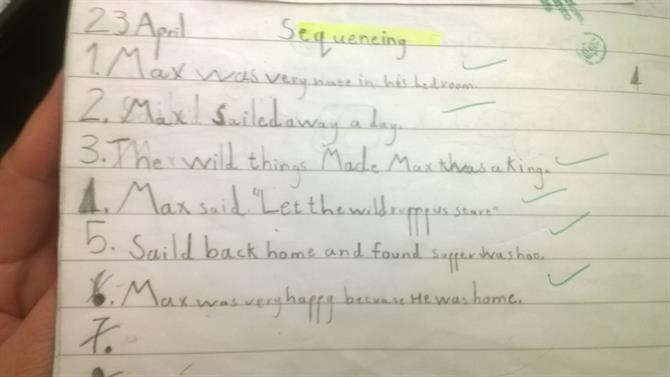 23 April Sequencing
1. Max was very nase in his bedroom.
2. Max Sailed away a day.
3. The wild things Made Max a King.
4. Max said "Let the wild rumppus start"
5. Saild back home and found supper was hot.
6. Max was very happy becuase He was home.
7.